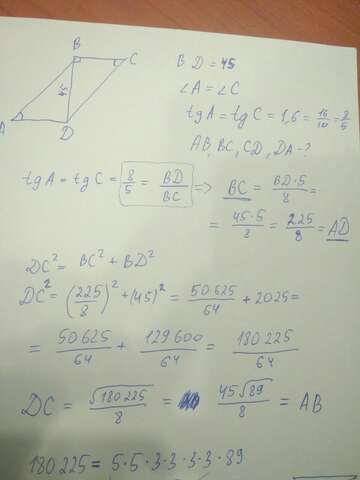 B
C
45
A
D
BD = 45
∠A = ∠C
tgA = tgC = 1,6 = 16/10 = 8/5
AB, BC, CD, DA - ?
tgA = tgC = 8/5 = BD/BC => BC = BD·5/8 =
= 45·5/8 = 225/8 = AD
DC² = BC² + BD²
DC² = (225/8)² + (45)² = 50625/64 + 2025 =
= 50625/64 + 129600/64 = 180225/64
DC = √180225/8 = 45√89/8 = AB
180225 = 5·5·3·3·3·3·89